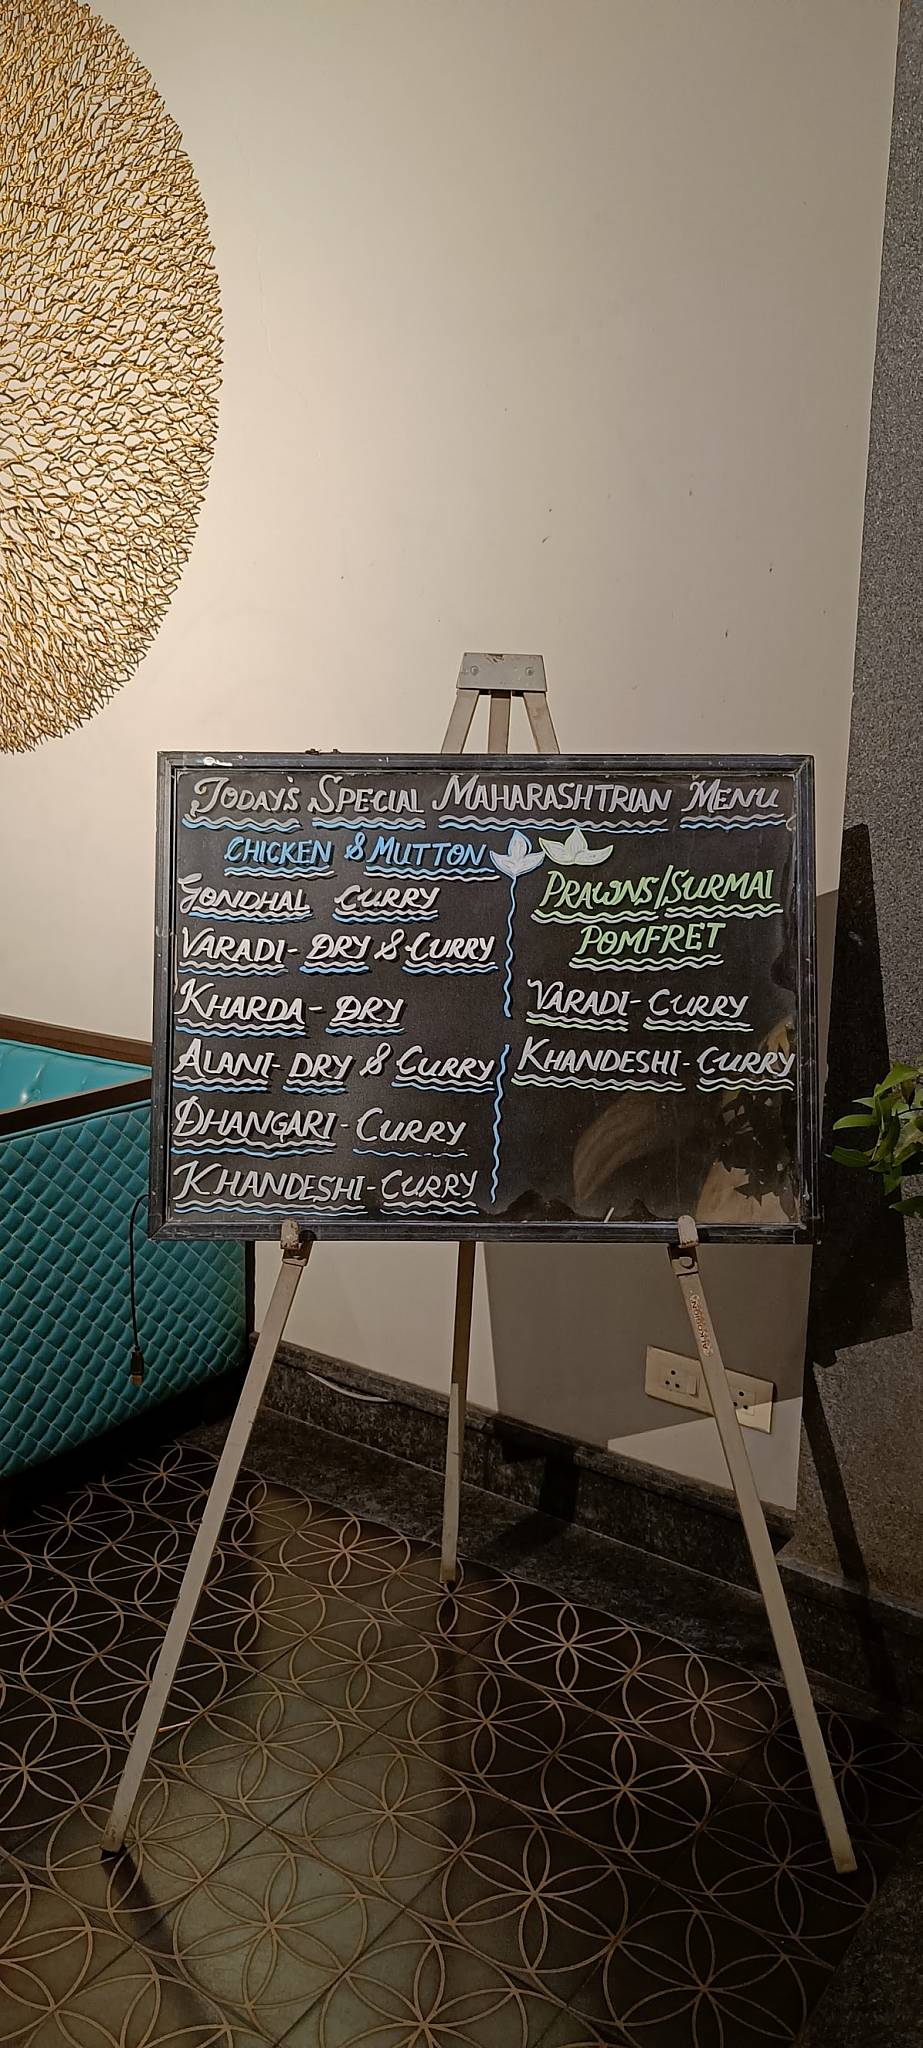 TODAY'S SPECIAL MAHARASHTRIAN MENU
CHICKEN & MUTTON
GONDHAL CURRY
VARADI- DRY & CURRY
KHARDA - DRY
ALANI- DRY & CURRY
DHANGARI - CURRY
KHANDESHI - CURRY
PRAWNS/SURMAI
POMFRET
VARADI - CURRY
KHANDESHI - CURRY